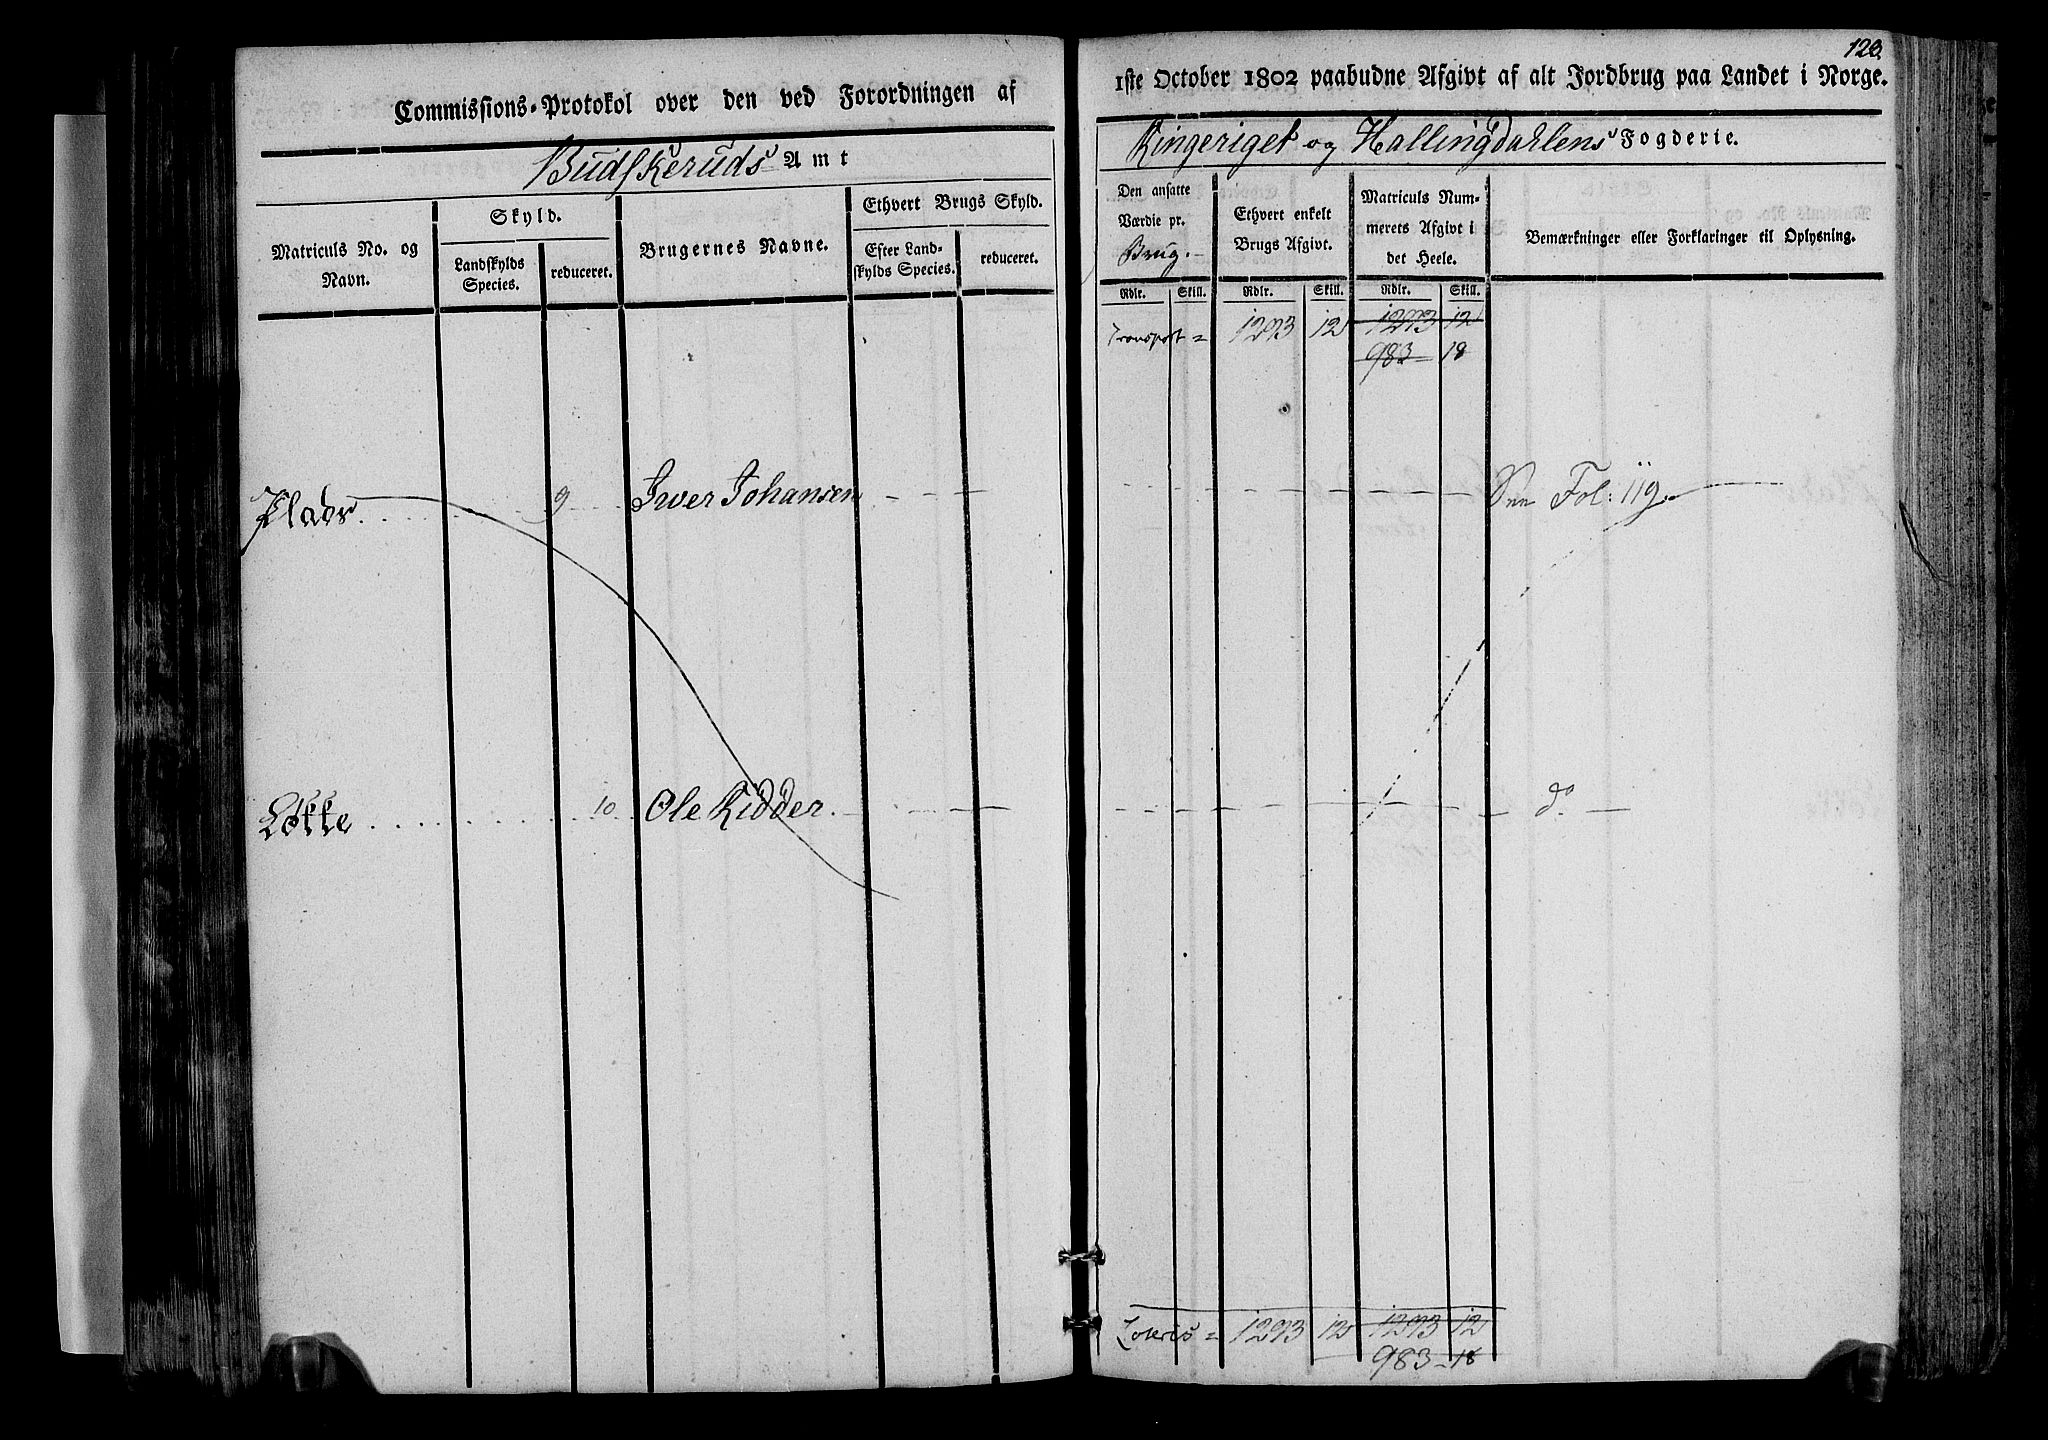 Commissions-Protokol over den ved Forordningen af
Budskeruds Amt
Matriculs No. og Navn.
Skyld.
Landskylds Species.
reduceret.
Brugernes Navne.
Ethvert Brugs Skyld.
Efter Landskylds Species.
reduceret.
Plads 9 Iwer Johansen
Løkke 10 Ole Kidder.
123.
1ste October 1802 paabudne Afgivt af alt Jordbrug paa Landet i Norge.
Ringeriget og Hallingdahlens Fogderie.
Den ansatte Værdie pr. Brug.
Ethvert enkelt Brugs Afgivt.
Matriculs Nummerets Afgivt i det Heele.
Bemærkninger eller Forklaringer til Oplysning.
Rdlr. Skill. Rdlr. Skill. Rdlr. Skill.
Transport = 1293 12 1293 12
983 18
See Fol: 119.
do
Lateris = 1293 12 1293 12
983 - 18